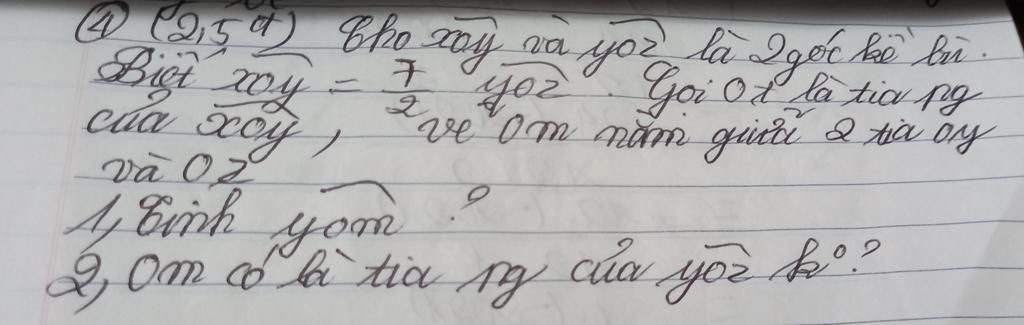 ④ (2,5 đ) Cho xoy và yoz là 2 góc kề bù.
Biết xoy = 7/2 yoz. Gọi Ot là tia pg
của xoy, vẽ Om nằm giữa 2 tia oy
và Oz
1, Tính yom ?
2, Om có là tia pg của yoz ko?